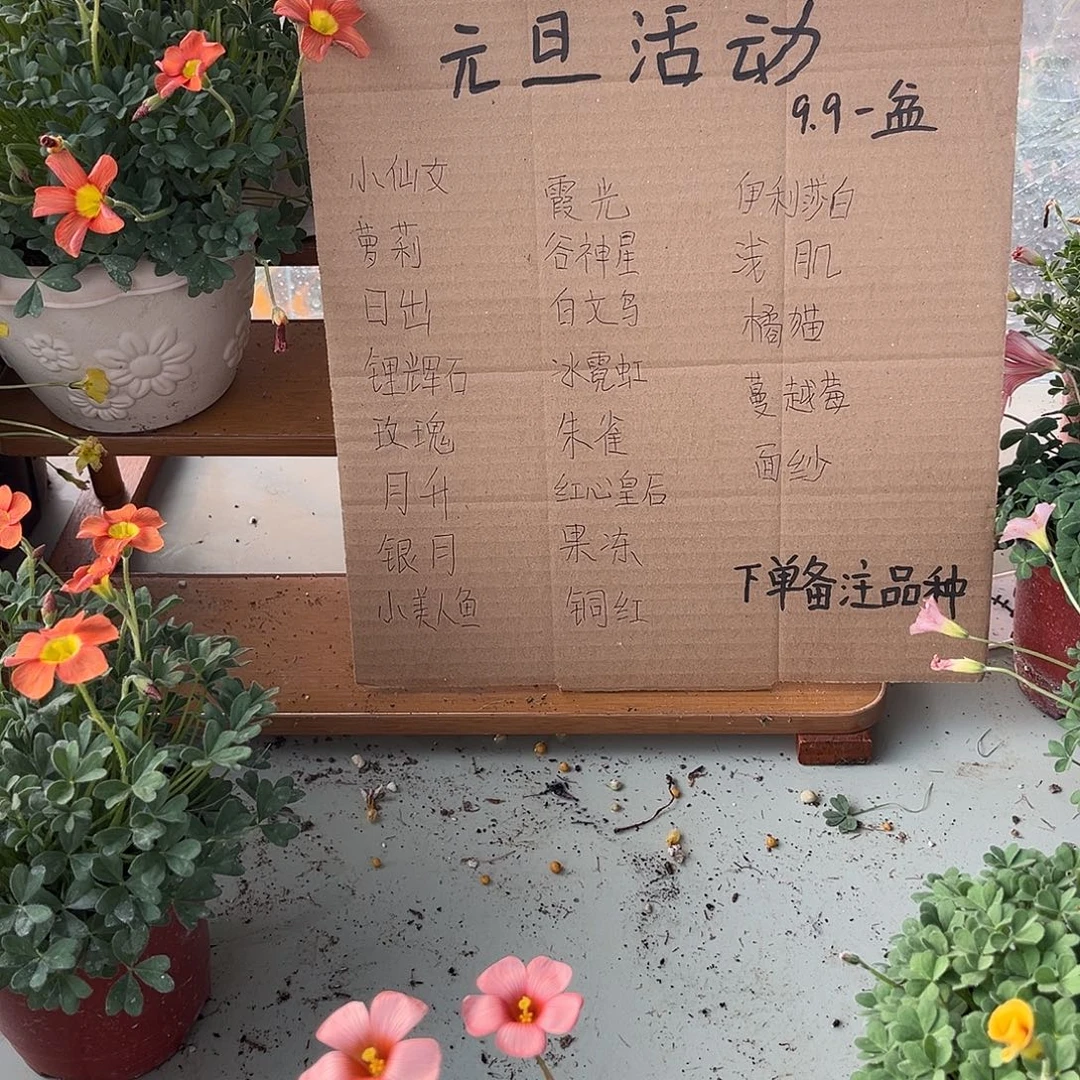 元旦活动
9.9一盆
小仙女
萝莉
日出
锂辉石
玫瑰
月升
银月
小美人鱼
霞光
谷神星
白文鸟
冰霓虹
朱雀
红心皇后
果冻
铜红
伊利莎白
浅肌
橘猫
蔓越莓
面纱
下单备注品种